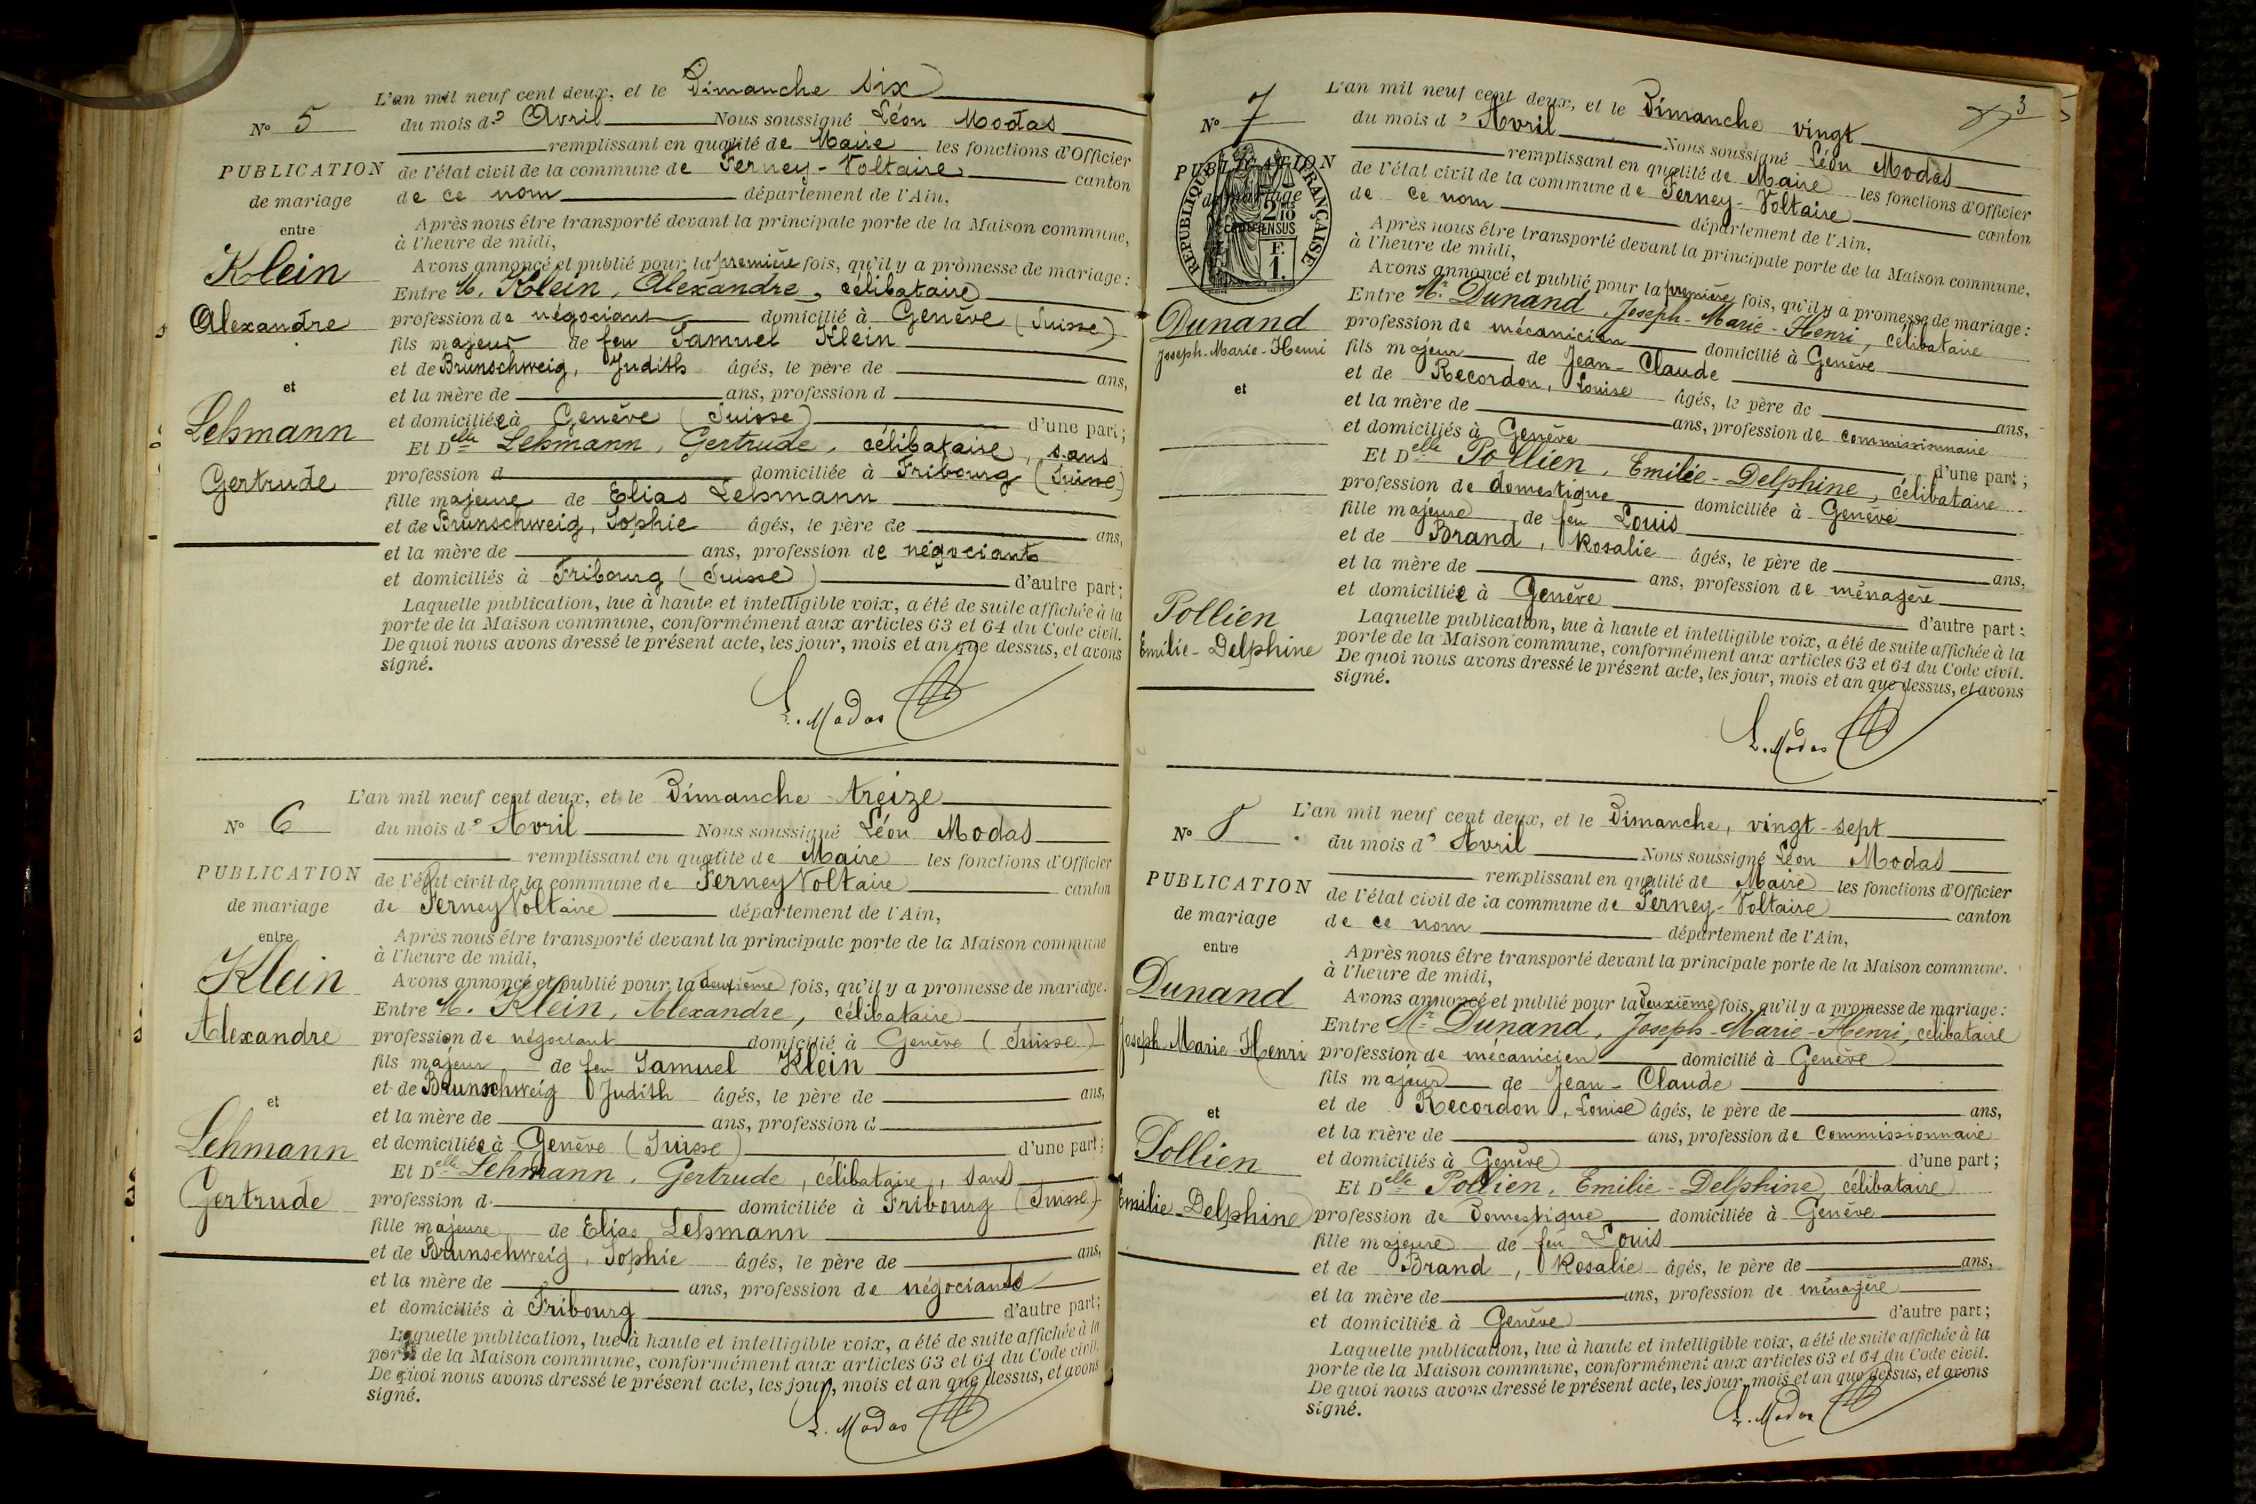 L'an mil neuf cent deux, et le Dimanche six
N° 5
du mois d' Avril Nous soussigné Léon Modas
remplissant en qualité de Maire les fonctions d'Officier
PUBLICATION
de l'état civil de la commune de Ferney-Voltaire canton
de mariage
de ce nom département de l'Ain,
entre
Après nous être transporté devant la principale porte de la Maison commune,
à l'heure de midi,
Klein
Avons annoncé et publié pour la première fois, qu'il y a promesse de mariage :
Entre M. Klein, Alexandre, célibataire
Alexandre
profession de négociant domicilié à Genève (Suisse)
fils majeur de feu Samuel Klein
et de Brunschweig, Judith âgés, le père de ans,
et
et la mère de ans, profession d
et domiciliée à Genève (Suisse) d'une part ;
Lehmann
Et Delle Lehmann, Gertrude, célibataire, sans
profession d domiciliée à Fribourg (Suisse)
Gertrude
fille majeure de Elias Lehmann
et de Brunschweig, Sophie âgés, le père de ans,
et la mère de ans, profession de négociants
et domiciliés à Fribourg (Suisse) d'autre part ;
Laquelle publication, lue à haute et intelligible voix, a été de suite affichée à la
porte de la Maison commune, conformément aux articles 63 et 64 du Code civil.
De quoi nous avons dressé le présent acte, les jour, mois et an que dessus, et avons
signé.
L. Modas
L'an mil neuf cent deux, et le Dimanche treize
N° 6
du mois d' Avril Nous soussigné Léon Modas
remplissant en qualité de Maire les fonctions d'Officier
PUBLICATION
de l'état civil de la commune de Ferney Voltaire canton
de mariage
de Ferney Voltaire département de l'Ain,
entre
Après nous être transporté devant la principale porte de la Maison commune
à l'heure de midi,
Klein
Avons annoncé et publié pour la deuxième fois, qu'il y a promesse de mariage.
Entre M. Klein, Alexandre, célibataire
Alexandre
profession de négociant domicilié à Genève (Suisse)
fils majeur de feu Samuel Klein
et de Brunschweig Judith âgés, le père de ans,
et
et la mère de ans, profession d
et domiciliée à Genève (Suisse) d'une part ;
Lehmann
Et Delle Lehmann, Gertrude, célibataire, sans
Gertrude
profession d domiciliée à Fribourg (Suisse)
fille majeure de Elias Lehmann
et de Brunschweig, Sophie âgés, le père de ans,
et la mère de ans, profession de négociants
et domiciliés à Fribourg d'autre part ;
Laquelle publication, lue à haute et intelligible voix, a été de suite affichée à la
porte de la Maison commune, conformément aux articles 63 et 64 du Code civil.
De quoi nous avons dressé le présent acte, les jour, mois et an que dessus, et avons
signé.
L. Modas
3
L'an mil neuf cent deux, et le Dimanche vingt
N° 7
du mois d' Avril Nous soussigné Léon Modas
remplissant en qualité de Maire les fonctions d'Officier
PUBLICATION
de l'état civil de la commune de Ferney-Voltaire canton
de mariage
RÉPUBLIQUE FRANÇAISE
2/10
EN SUS
F.
1.
de ce nom département de l'Ain,
Après nous être transporté devant la principale porte de la Maison commune,
à l'heure de midi,
Avons annoncé et publié pour la première fois, qu'il y a promesse de mariage :
Entre Mr Dunand, Joseph-Marie-Henri, célibataire
Dunand
profession de mécanicien domicilié à Genève
Joseph-Marie-Henri
fils majeur de Jean-Claude
et de Recordon, Louise âgés, le père de ans,
et
et la mère de ans, profession de commissionnaire
et domiciliés à Genève d'une part ;
Et Delle Pollien, Emilie-Delphine, célibataire
profession de domestique domiciliée à Genève
fille majeure de feu Louis
et de Brand, Rosalie âgés, le père de ans,
et la mère de ans, profession de ménagère
et domiciliée à Genève d'autre part ;
Pollien
Emilie-Delphine
Laquelle publication, lue à haute et intelligible voix, a été de suite affichée à la
porte de la Maison commune, conformément aux articles 63 et 64 du Code civil.
De quoi nous avons dressé le présent acte, les jour, mois et an que dessus, et avons
signé.
L. Modas
L'an mil neuf cent deux, et le Dimanche, vingt-sept
N° 8
du mois d' Avril Nous soussigné Léon Modas
remplissant en qualité de Maire les fonctions d'Officier
PUBLICATION
de l'état civil de la commune de Ferney-Voltaire canton
de mariage
de ce nom département de l'Ain,
entre
Après nous être transporté devant la principale porte de la Maison commune.
à l'heure de midi,
Dunand
Avons annoncé et publié pour la deuxième fois, qu'il y a promesse de mariage :
Entre Mr Dunand, Joseph-Marie-Henri, célibataire
Joseph Marie Henri
profession de mécanicien domicilié à Genève
fils majeur de Jean-Claude
et de Recordon, Louise âgés, le père de ans,
et
et la mère de ans, profession de Commissionnaire
Pollien
et domiciliés à Genève d'une part ;
Et Delle Pollien, Emilie-Delphine, célibataire
Emilie-Delphine
profession de Domestique domiciliée à Genève
fille majeure de feu Louis
et de Brand, Rosalie âgés, le père de ans,
et la mère de ans, profession de ménagère
et domiciliée à Genève d'autre part ;
Laquelle publication, lue à haute et intelligible voix, a été de suite affichée à la
porte de la Maison commune, conformément aux articles 63 et 64 du Code civil.
De quoi nous avons dressé le présent acte, les jour, mois et an que dessus, et avons
signé.
L. Modas